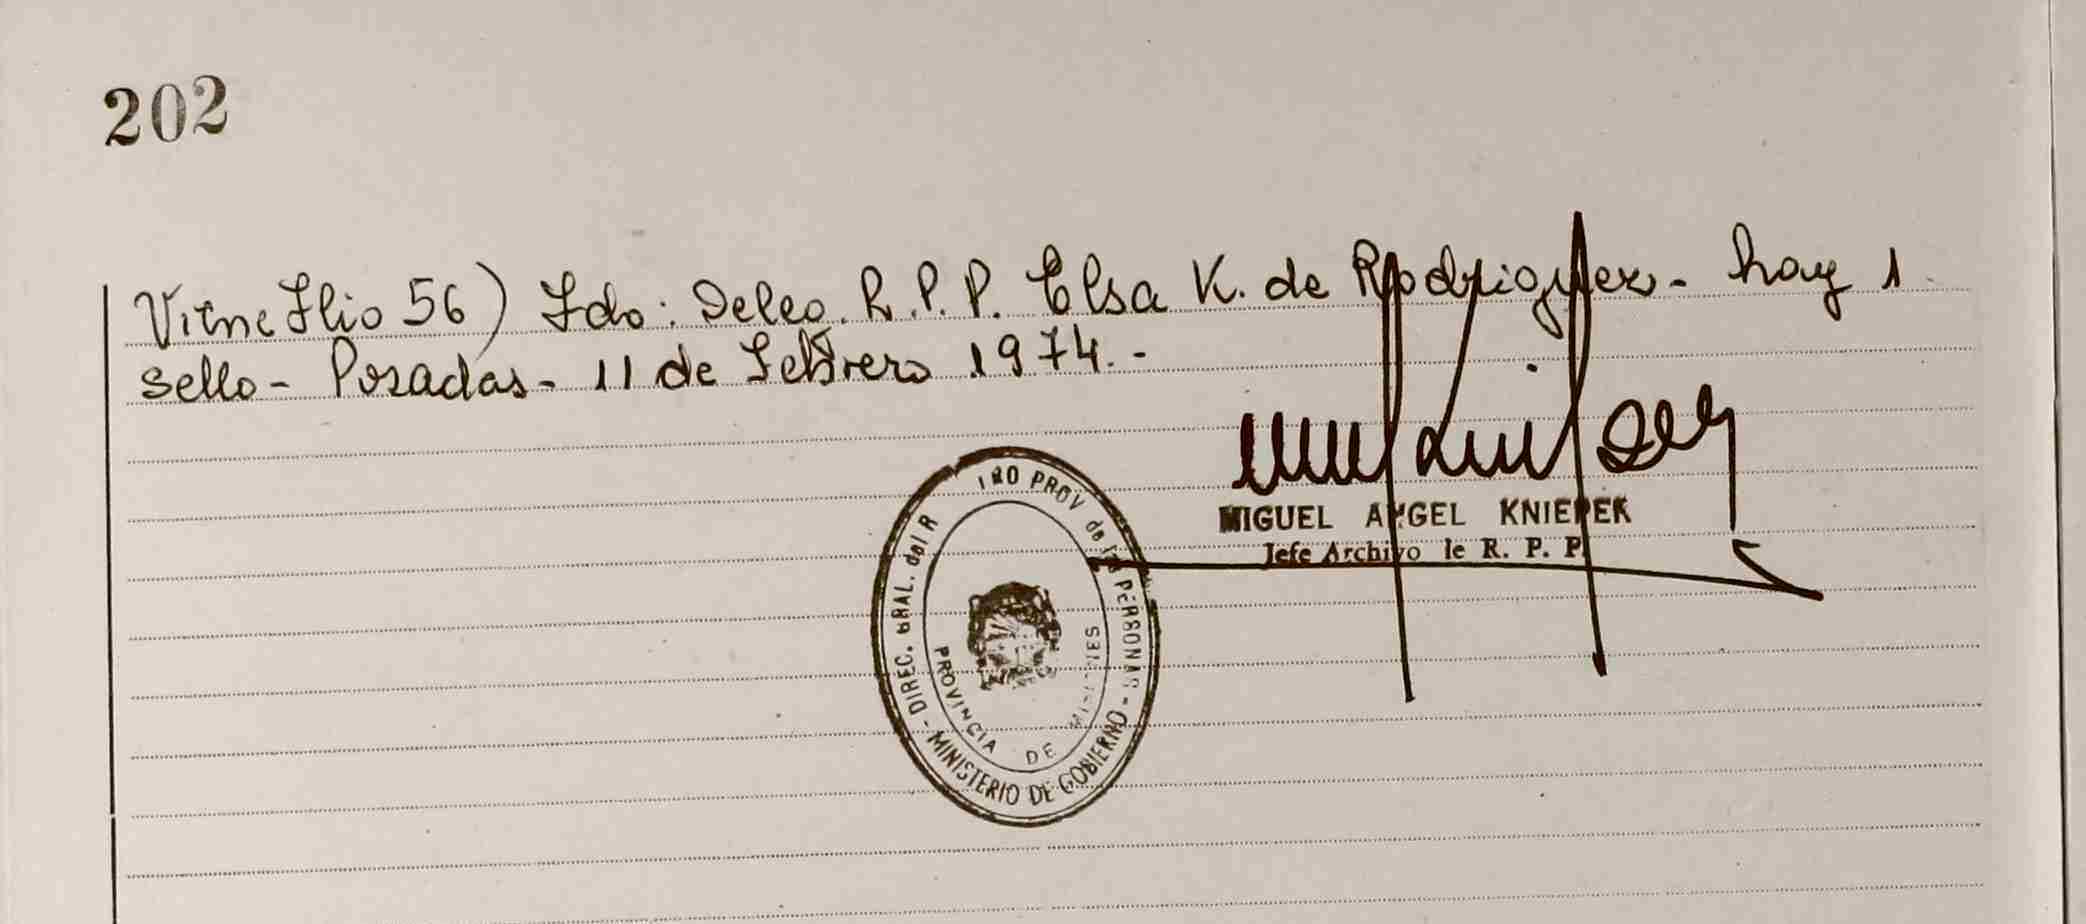 202
Viene flio 56) Fdo: Deleg. R.P.P. Elsa K. de Rodriguez- hay 1
sello- Posadas- 11 de Febrero 1974.-
MIGUEL ANGEL KNIEPEK
Jefe Archivo de R. P. P.
DIREC. GRAL. del R IRO PROV de las PERSONAS - MINISTERIO DE GOBIERNO -
PROVINCIA DE MISIONES